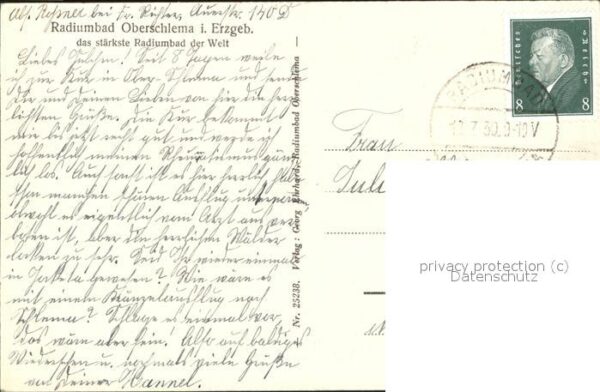 bei Fr. Richter, Auerstr. 140 D
Radiumbad Oberschlema i. Erzgeb.
das stärkste Radiumbad der Welt
Liebes Julchen! Seit 8 Tagen weile
ich zur Kur in Ober-Schlema und sende
Dir und Deinen Lieben von hier die herz-
lichsten Grüße. Die Kur bekommt
mir bis jetzt recht gut und werde ich
hoffentlich meinen Rheumatismus ganz
los. Auch sonst ist es hier herrlich
manchen schönen Ausflug
obwohl es eigentlich vom Arzt aus ver-
boten ist, aber die herrlichen Wälder
locken zu sehr. Seid Ihr wieder einmal
in Jocketa gewesen? Wie wäre es
mit einem Kränzelausflug nach
Schlema? Schlage es einmal vor,
das wäre aber fein! Also auf baldiges
Wiedersehen u. nochmals viele Grüße
von Deiner Hannel.
Nr. 25238. Verlag: Georg Ehrhardt, Radiumbad Oberschlema
Deutsches Reich
8 8
RADIUMBAD
12.7.30.9-10V
Frau
privacy protection (c)
Datenschutz